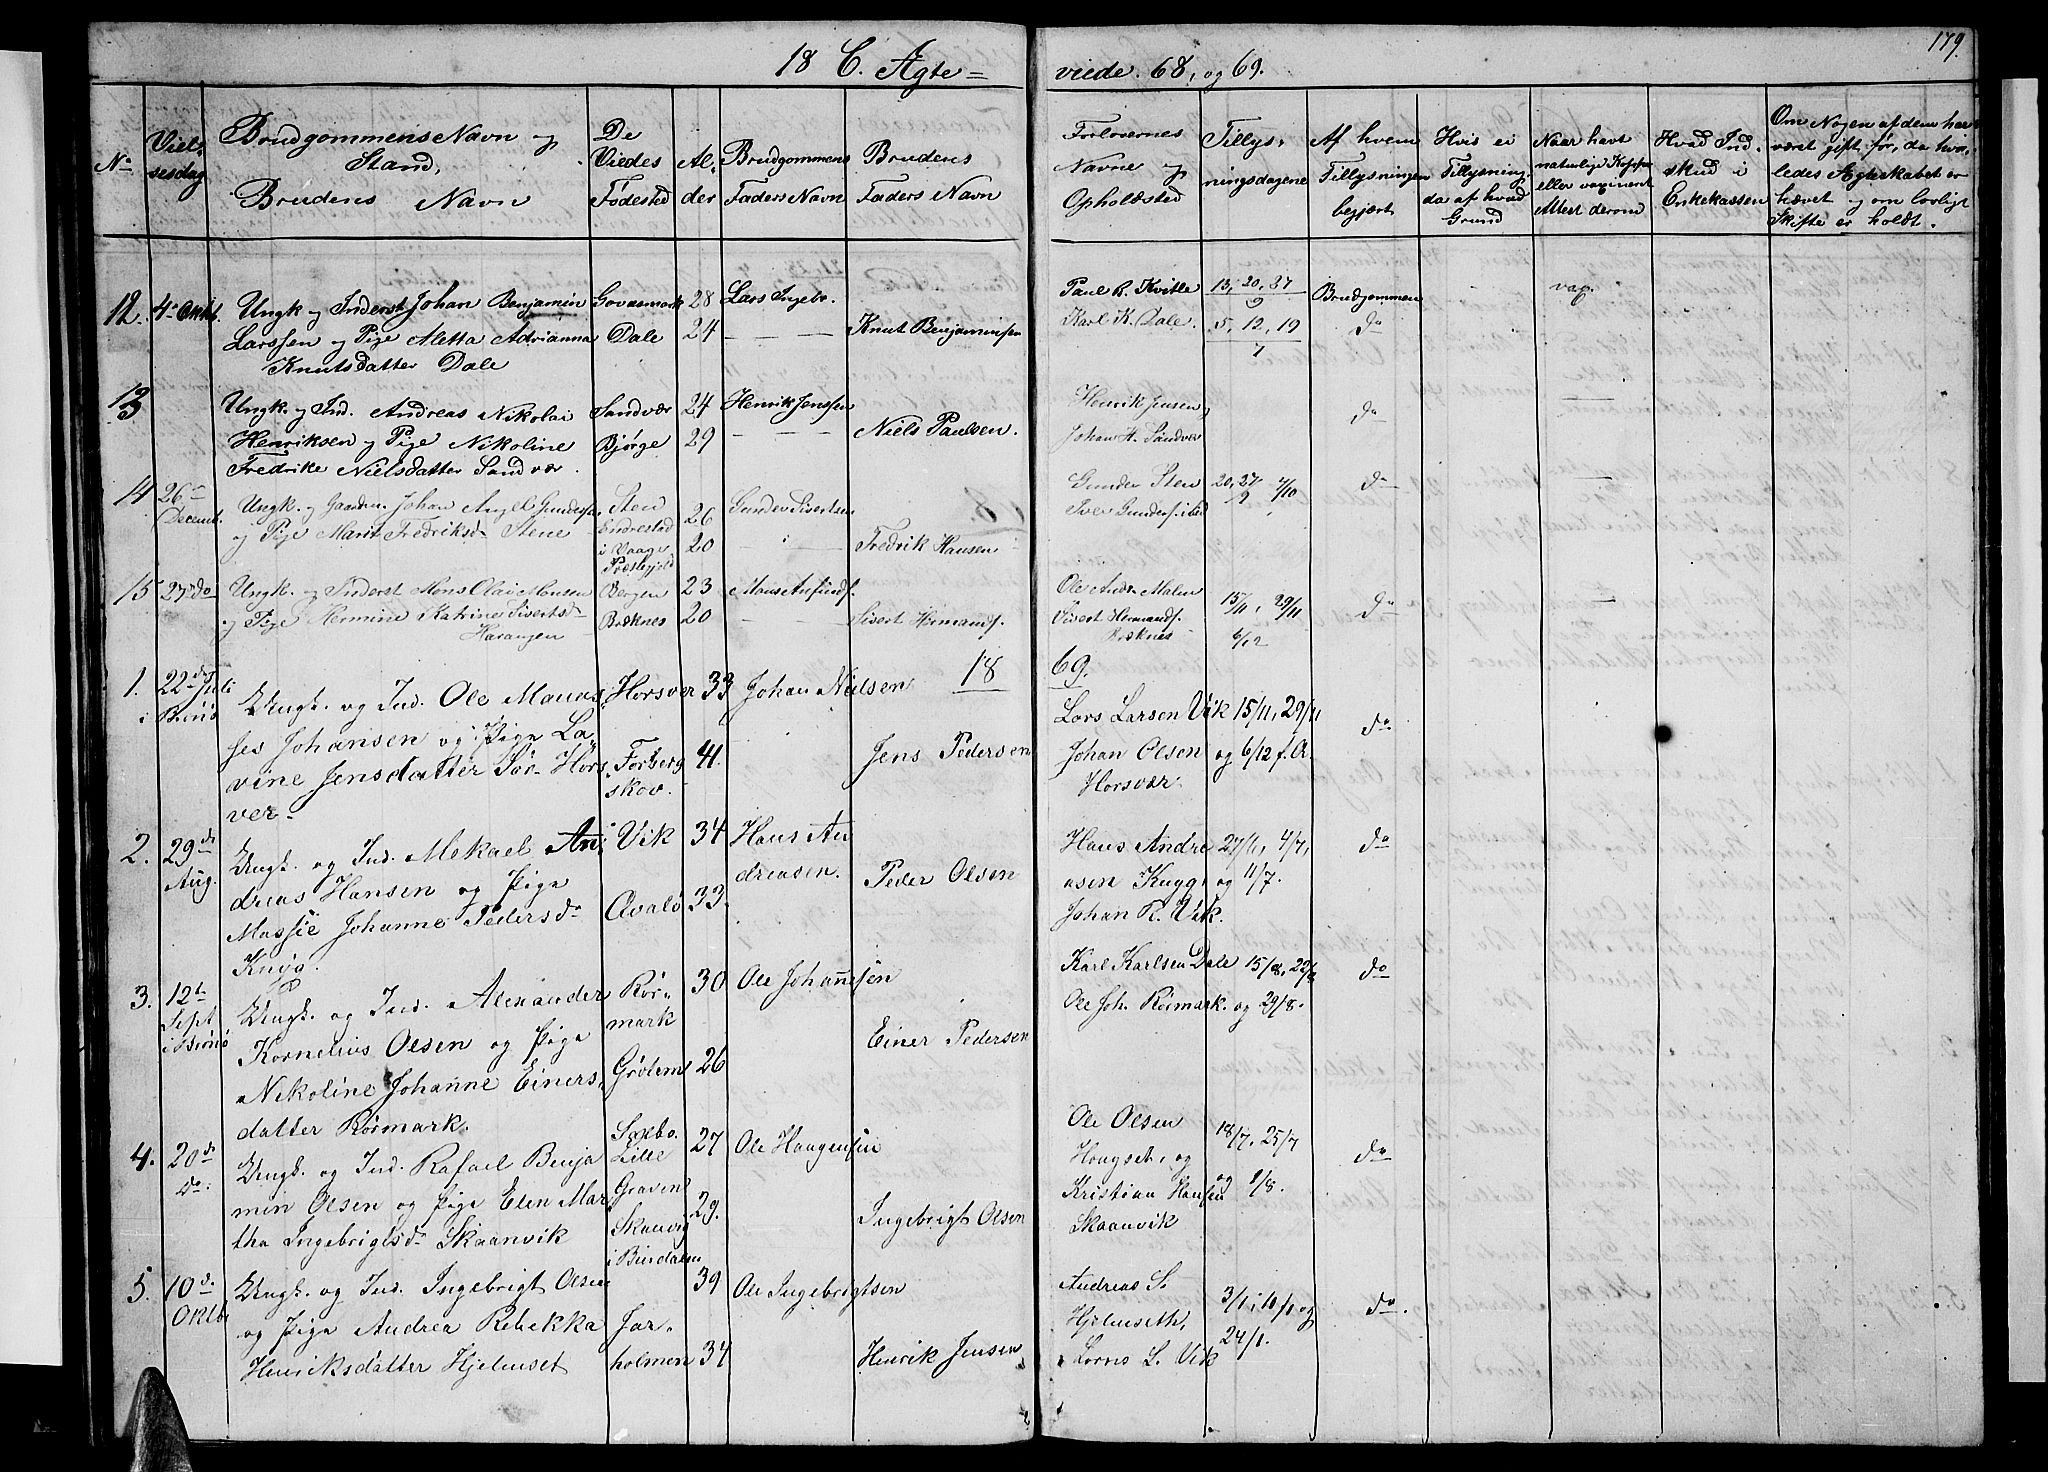 179
18 C. Agte= viede. 68, og 69.
No
Viel-
sesdag
Brudgommens Navn og
Stand,
Brudens Navn
De
Viedes
Fødested
Al-
der
Brudgommens
Faders Navn
Brudens
Faders Navn
Forlovernes
Navne og
Opholdsted
Tillys-
ningsdagene
Af hvem
Tillysningen
begjært
Hvis ei
Tillysning,
da af hvad
Grund
Naar havt
naturlige Kopper
eller vaccineret
Attest derom
Hvad Ind-
skud i
Enkekassen
Om Nogen af dem har
været gift før, da hvor-
ledes Ægteskabet er
hævet og om lovligt
Skifte er holdt.
12. 4de Oktbr. Ungk og Inderst Johan Benjamin 28 Lars Ingebr. Paul R. Kvitle 13, 20, 27/9 Brudgommen vac.
Larssen og Pige Aletta Adrianna Dale 24 Knut Benjaminsen Karl K. Dale. 5, 12, 19/7 do
Knutsdatter Dale
13 Ungk. og Ind. Andreas Nikolai Sandvær 24 Henrik Jenssen Henrik Jensen, do
Henriksen og Pige Nikoline Bjørge 29 Niels Paulsen. Johan H. Sandvær
Fredrike Nielsdatter Sandvær.
14 26de Decemb. Ungk. og Gaardm. Johan Angel Gundersen Sten 26 Gunder Sivertsen Gunder Sten 20, 27/9 4/10 do
og Pige Marit Fredriksd. Stene Endrestad i Vaage Præstegjeld 20 Fredrik Hansen Iver Gunders.
15 27de do Ungk. og Inderst Mons Olai Monsen Bergen 23 Mons Anfinds. Ole Andr. Malen 15/11, 29/11 do
og Pige Hermine Katrine Siverts- Bræknes 20 Sivert Hermands. Sivert Hermands. 6/12
Harangen Bræknes
18 69.
1. 22de Juli i Brønø Ungk. og Ind. Ole Maurs- Horsver 33 Johan Nielsen Lars Larsen Vik 15/11, 29/11 do
ses Johansen og Pige La- Jens Pedersen Johan Olsen og 6/12 f. A.
vine Jensdatter Sør-Hors- Forbergskov. 41. Horsvær.
ver.
2. 29de Aug. Ungk. og Ind. Mekael An- Vik 34 Hans An- Hans Andre 27/11, 4/7, do
dreas Hansen og Pige dreasen. Peder Olsen asen Knygg og 11/7.
Massie Johanne Pedersd. Qvalø 33. Johan R. Vik.
3. 12te Sept i Brønø Ungk. og Ind. Alexander Rør- 30 Ole Johannesen Karl Karlsen Dale 15/8, 22/8 do
Kornelius Olsen og Pige mark Einer Pedersen Ole Joh. Rørmark. og 29/8.
Nikoline Johanne Einers- Grølem 26
datter Rørmark.
4. 20de do. Ungk. og Ind. Rafael Benja Lille 27 Ole Haagensen Ole Olsen 18/7, 25/7 do
min Olsen og Pige Elen Mar Graven Hougset, og og 1/8.
tha Ingebrigtsd. Skaanvik Skanvig i Bindalen 29. Ingebrigt Olsen Kristian Hansen
Skaanvik
5. 10de Oktbr Ungk. og Ind. Ingebrigt Olsen 39 Ole Ingebrigtsen Andreas S. 3/1, 10/1 og do.
og Pige Andrea Rebekka Jar- Hjelmseth,
Henriksdatter Hjelmset holmen 34 Henrik Jensen Lorns L. Vik 24/1.